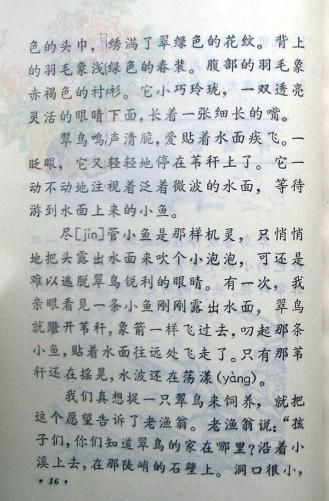 色的头巾，绣满了翠绿色的花纹。背上
的羽毛象浅绿色的春装。腹部的羽毛象
赤褐色的衬衫。它小巧玲珑，一双透亮
灵活的眼睛下面，长着一张细长的嘴。
翠鸟鸣声清脆，爱贴着水面疾飞。一
眨眼，它又轻轻地停在苇秆上了。它一
动不动地注视着泛着微波的水面，等待
游到水面上来的小鱼。
尽[jǐn]管小鱼是那样机灵，只悄悄
地把头露出水面来吹个小泡泡，可还是
难以逃脱翠鸟锐利的眼睛。有一次，我
亲眼看见一条小鱼刚刚露出水面，翠鸟
就蹬开苇秆，象箭一样飞过去，叼起那条
小鱼，贴着水面往远处飞走了。只有那苇
秆还在摇晃，水波还在荡漾(yàng)。
我们真想捉一只翠鸟来饲养，就把
这个愿望告诉了老渔翁。老渔翁说：“孩
子们，你们知道翠鸟的家在哪里？沿着小
溪上去，在那陡峭的石壁上。洞口很小，
·16·